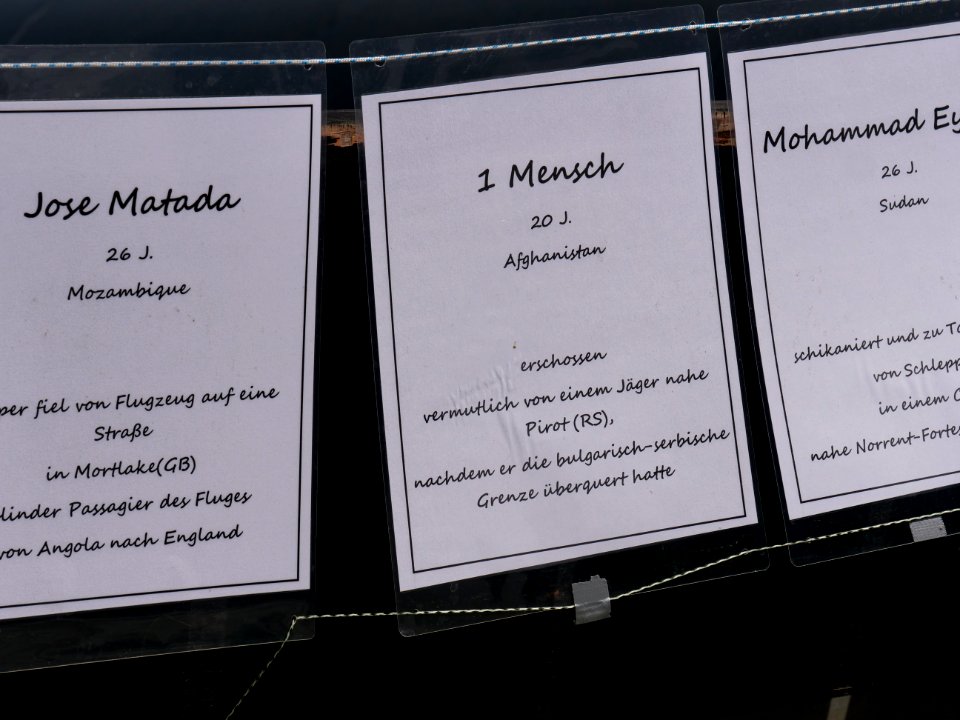 Jose Matada
26 J.
Mozambique
fiel von Flugzeug auf eine
Straße
in Mortlake(GB)
Passagier des Fluges
von Angola nach England
1 Mensch
20 J.
Afghanistan
erschossen
vermutlich von einem Jäger nahe
Pirot (RS),
nachdem er die bulgarisch-serbische
Grenze überquert hatte
Mohammad
26 J.
Sudan
schikaniert und zu
von
in einem
nahe